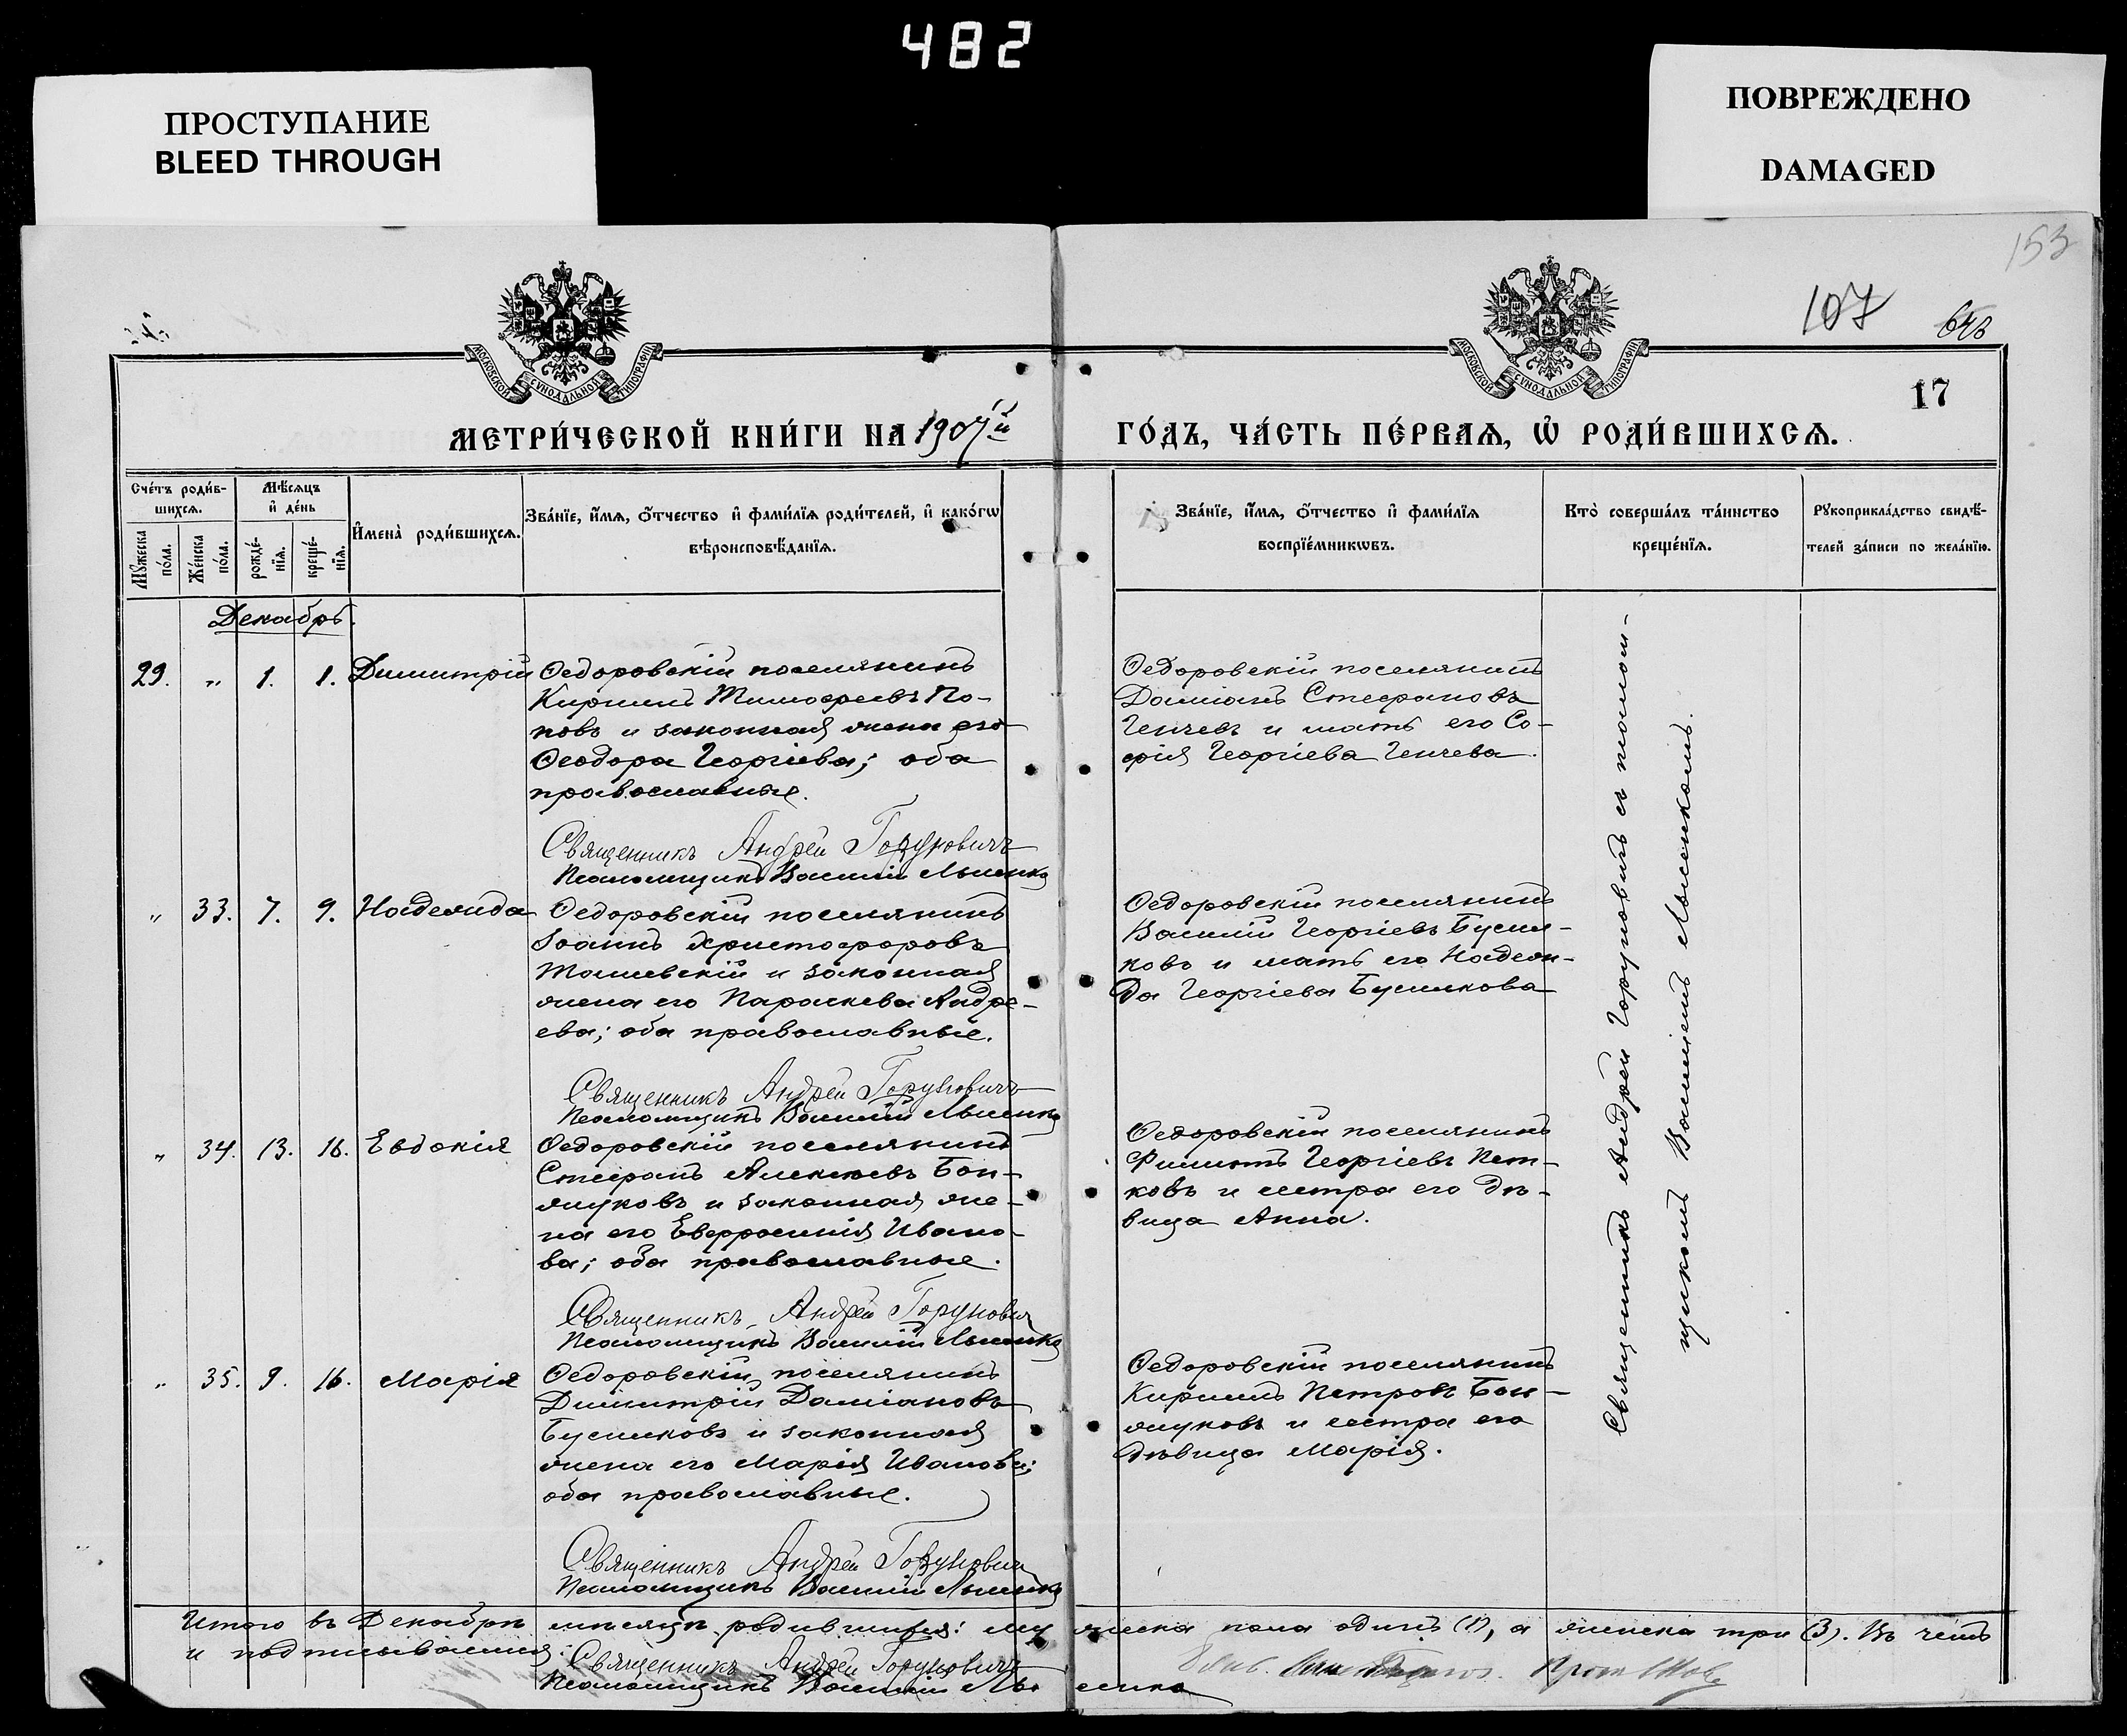 482
ПРОСТУПАНИЕ
BLEED THROUGH
ПОВРЕЖДЕНО
DAMAGED
153
107
17
МОСКОВСКОЙ СѴНОДАЛЬНОЙ ТИПОГРАФІИ
МОСКОВСКОЙ СѴНОДАЛЬНОЙ ТИПОГРАФІИ
МЕТРИ́ЧЕСКОЙ КНИ́ГИ НА 1907й ГО́ДЪ, ЧА́СТЬ ПЕ́РВАѦ, Ѡ҆ РОДИ́ВШИХСѦ.
Сче́тъ роди́в-
шихсѧ.
Мꙋ́жеска по́ла.
Же́нска по́ла.
Мѣ́сѧцъ и҆ де́нь
рожде́нїѧ.
креще́нїѧ.
И҆мена̀ роди́вшихсѧ.
Зва́нїе, и҆́мѧ, ѻ҆́тчество и҆ фами́лїѧ роди́телей, и҆ како́гѡ
вѣроисповѣ́данїѧ.
Зва́нїе, и҆́мѧ, ѻ҆́тчество и҆ фами́лїѧ
воспрїе́мникѡвъ.
Кто̀ соверша́лъ та́инство
креще́нїѧ.
Рꙋкоприкла́дство свидѣ́-
телей за́писи по жела́нїю.
Декабрь.
29. " 1. 1. Димитрій
Ѳедоровскій поселянинъ
Кириллъ Тимоѳеевъ По-
повъ и законная жена его
Ѳеодора Георгіева; оба
православные.
Священникъ Андрей Горуновичъ
Псаломщикъ Василій Лысенко
Ѳедоровскій поселянинъ
Даміанъ Стефановъ
Генчевъ и мать его Со-
фія Георгіева Генчева.
" 33. 7. 9. Надежда
Ѳедоровскій поселянинъ
Іоаннъ Христофоровъ
Ташевскій и законная
жена его Параскева Андре-
ева; оба православные.
Священникъ Андрей Горуновичъ
Псаломщикъ Василій Лысенко
Ѳедоровскій поселянинъ
Василій Георгіевъ Бусил-
ковъ и мать его Надеж-
да Георгіева Бусилкова
" 34. 13. 16. Евдокія
Ѳедоровскій поселянинъ
Стефанъ Алексѣевъ Бои-
жуковъ и законная же-
на его Евфросинія Ивано-
ва; оба православные.
Священникъ Андрей Горуновичъ
Псаломщикъ Василій Лысенко
Ѳедоровскій поселянинъ
Филиппъ Георгіевъ Пет-
ковъ и сестра его дѣ-
вица Анна.
" 35. 9. 16. Марія
Ѳедоровскій поселянинъ
Димитрій Даміановъ
Бусилковъ и законная
жена его Марія Иванова;
оба православные.
Священникъ Андрей Горуновичъ
Псаломщикъ Василій Лысенко
Ѳедоровскій поселянинъ
Кириллъ Петровъ Бои-
жуковъ и сестра его
дѣвица Марія.
Священникъ Андрей Горуновичъ съ псалом-
щикомъ Василіемъ Лысенкомъ.
Итого въ Декабрѣ мѣсяцѣ родившихся: мужеска пола одинъ (1), а женска три (3). Въ чемъ
и подписываемся:
Священникъ Андрей Горуновичъ
Псаломщикъ Василій Лысенко